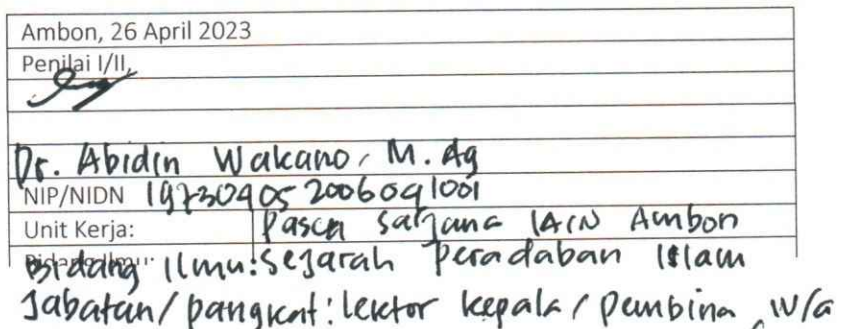 Ambon, 26 April 2023
Penilai I/II,
Dr. Abidin Wakano, M. Ag
NIP/NIDN 197304052006041001
Unit Kerja: Pasca sarjana IAIN Ambon
Bidang Ilmu: Sejarah Peradaban Islam
Jabatan/pangkat: lektor kepala/pembina IV/a